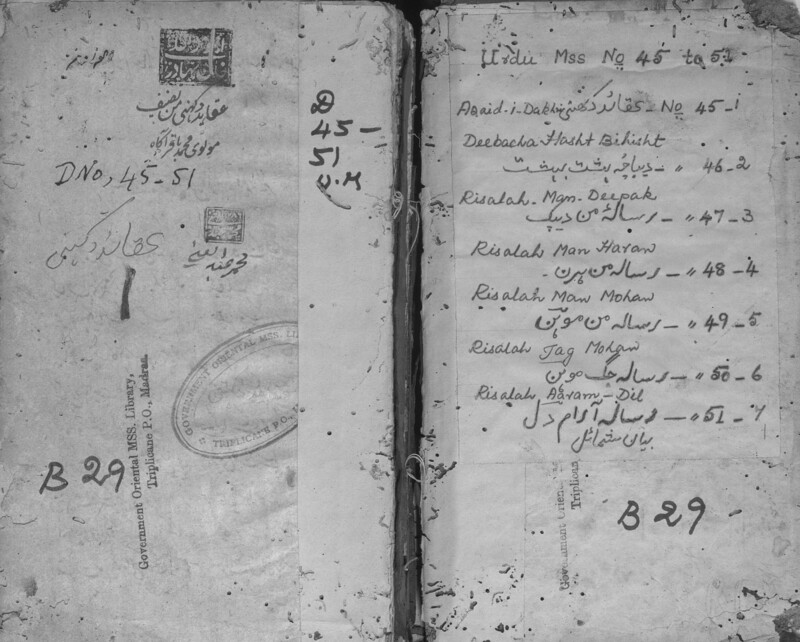 عقاید دکهنی من تصنیف
مولوی محمد باقر آگاه
D No, 45-51
عقائد دکهنی
1
Government Oriental MSS. Library,
Triplicane P.O., Madras.
GOVERNMENT ORIENTAL MSS. LI
TRIPLICANE P.O.
B 29
D
45 -
51
U.M
Urdu Mss No 45 to 51
Aqaid-i-Dakhni عقائد دکهنی - No 45-1
Deebacha Hasht Bihisht
دیباچۂ ہشت بہشت - " 46-2
Risalah - Man - Deepak
رسالۂ من دیپک - " 47-3
Risalah Man Haran
رسالہ من ہرن - " 48-4
Risalah Man Mohan
رسالہ من موہن - " 49-5
Risalah Jag Mohan
رسالہ جگ موہن - " 50-6
Risalah Aaram-Dil
رسالہ آرام دل - " 51-7
بیان شمائل
Triplica
B 29